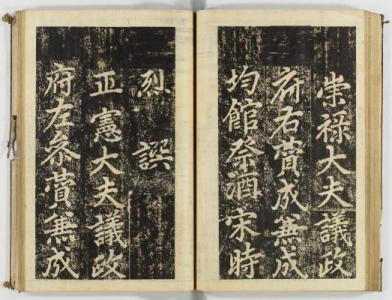 崇禄大夫議政
府右賛成兼成
均館祭酒宋時
烈譔
正憲大夫議政
府左参賛兼成